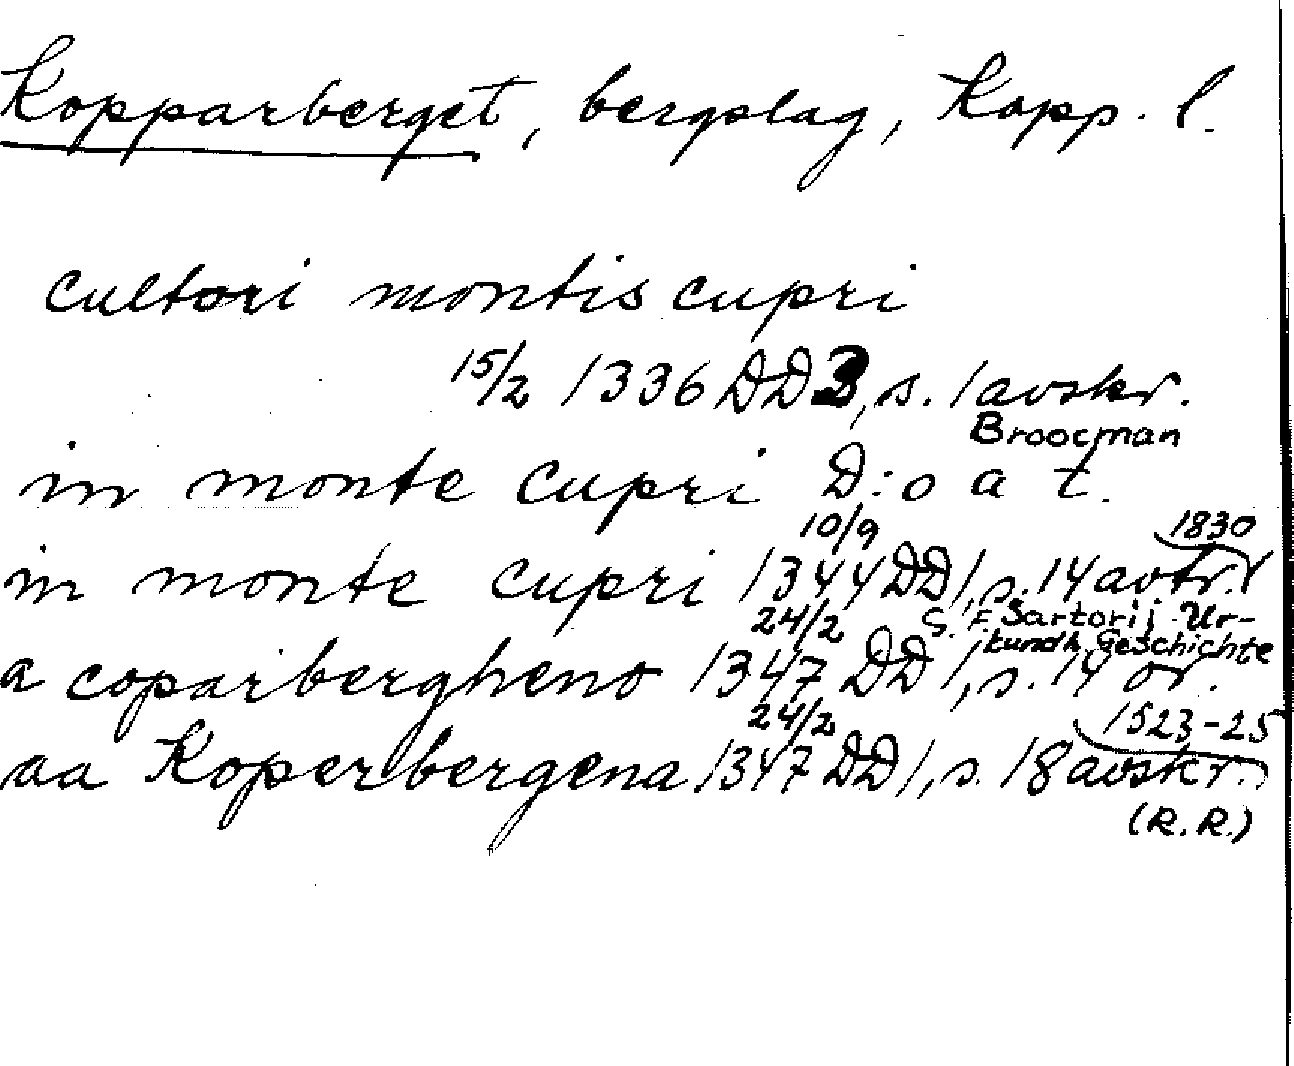 Kopparberget, bergslag, Kopp. l.
cultori montis cupri
15/2 1336 DD 3, s. 1 avskr.
Broocman
in monte cupri D:o a t.
in monte cupri 10/9 1344 DD 1, s. 14 avtr. 1830
S. F. Sartorij Ur-
kundh. Geschichte
a coparbergheno 24/2 1347 DD 1, s. 14 or.
aa Koperbergena 24/2 1347 DD 1, s. 18 avskr. 1523-25
(R.R.)